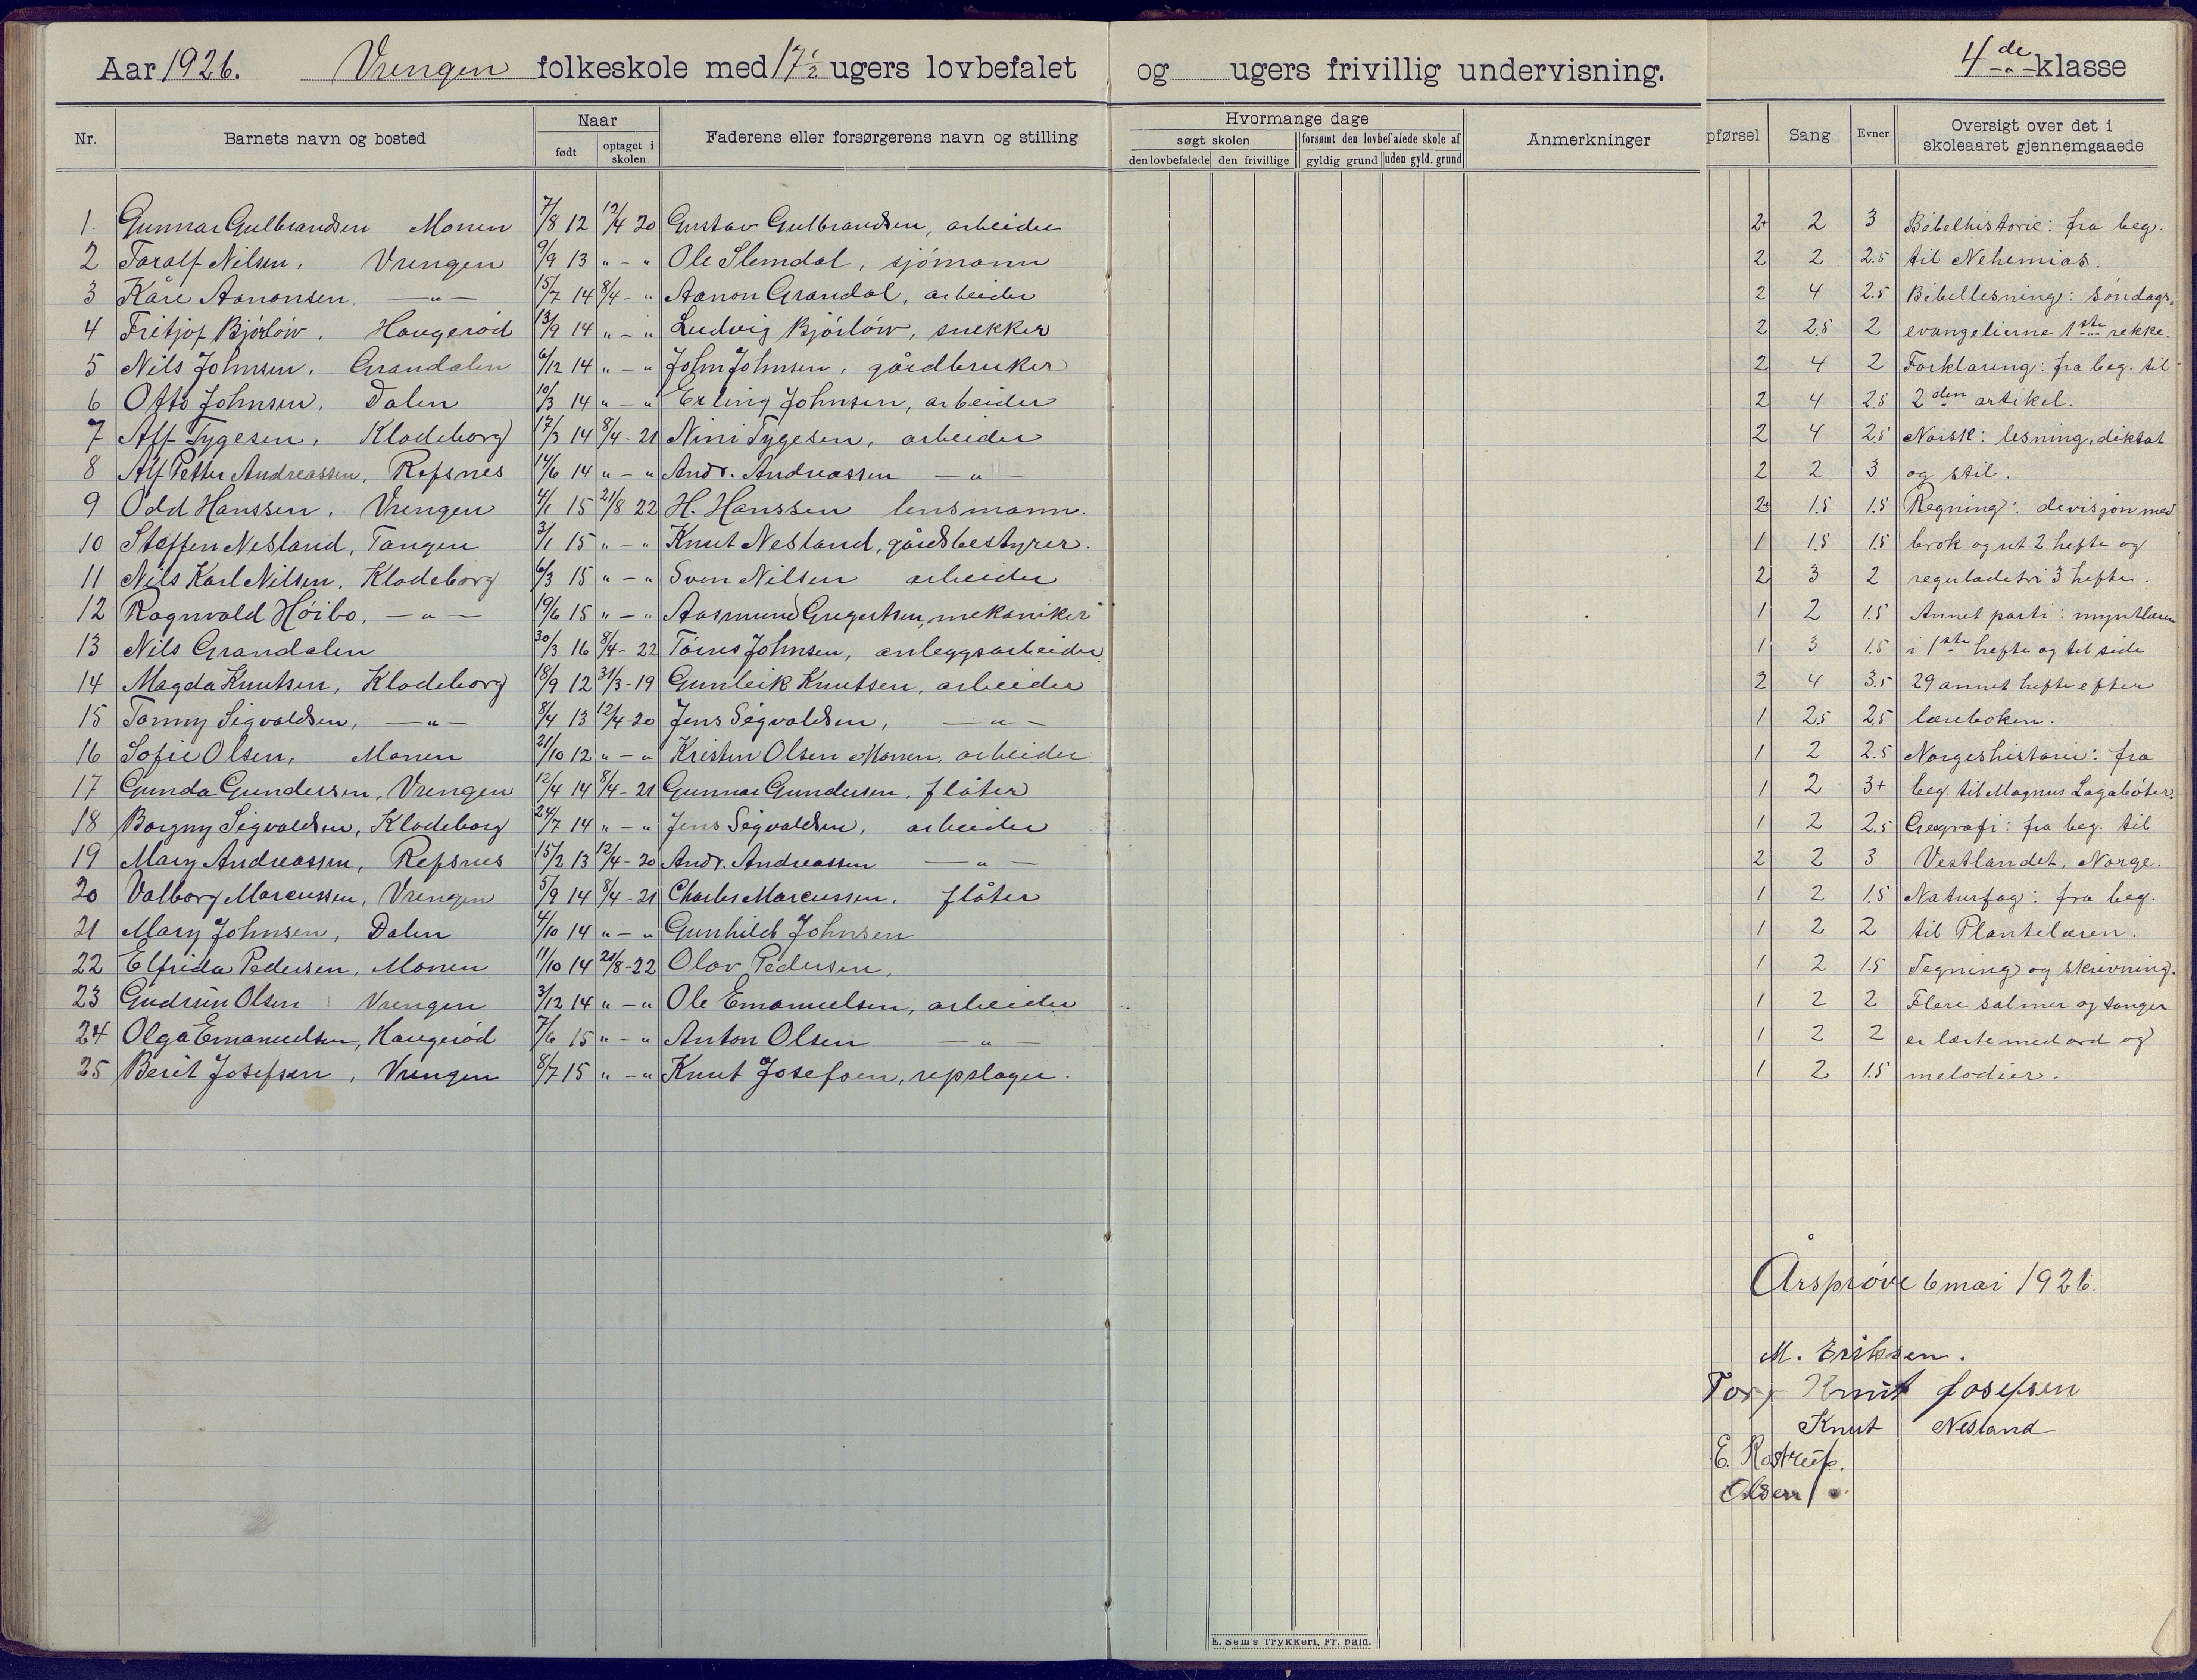 Aar 1926. Vrengen folkeskole med 17½ ugers lovbefalet og ugers frivillig undervisning. 4de klasse
Nr. Barnets navn og bosted Naar født optaget i skolen Faderens eller forsørgerens navn og stilling
Hvormange dage søgt skolen den lovbefalede den frivillige forsømt den lovbefalede skole af gyldig grund uden gyld. grund Anmerkninger
pførsel Sang Evner Oversigt over det i skoleaaret gjennemgaaede
1. Gunnar Gulbrandsen Monen 7/8 12 12/4 20 Gustav Gulbrandsen, arbeider 2+ 2 3 Bibelhistorie: fra beg.
2 Taralf Nilsen, Vrengen 9/9 13 " - " Ole Slemdal, sjömann 2 2 2.5 til Nehemias.
3 Kåre Aanonsen - " - 15/7 14 8/4 - " Aanon Grandal, arbeider 2 4 2.5 Bibellesning: söndags=
4 Fritjof Bjórlöw, Haugeröd 13/9 14 " - " Ludvig Bjórlöw, snekker 2 2.5 2 evangelierne 1ste rekke.
5 Nils Johnsen, Grandalen 6/12 14 " - " John Johnsen, gårdbruker 2 4 2 Forklaring: fra beg. til
6 Otto Johnsen, Dalen 10/3 14 " - " Erling Johnsen, arbeider 2 4 2.5 2den artikel.
7 Alf Tygesen, Klodeborg 17/3 14 8/4 - 21 Nini Tygesen, arbeider 2 4 2.5 Norsk: lesning, diktat
8 Alf Petter Andreassen, Refsnes 14/6 14 " - " Andr. Andreassen - " - 2 2 3 og stil.
9 Odd Hanssen, Vrengen 4/1 15 21/8 22 H. Hanssen lensmann. 2+ 1.5 1.5 Regning: devisjon med
10 Steffen Nesland, Tangen 3/1 15 " - " Knut Nesland, gårdsbestyrer. 1 1.5 1.5 brok og ut 2 hefte og
11 Nils Karl Nilsen, Klodeborg 6/3 15 " - " Sven Nilsen arbeider 2 3 2 reguladetri 3 hefte.
12 Ragnvald Höibo, - " - 19/6 15 " - " Aasmund Gregertsen, mekaniker 1 2 1.5 Annet parti: myntlæren
13 Nils Grandalen 30/3 16 8/4 - 22 Törres Johnsen, anleggsarbeider. 1 3 1.5 i 1ste hefte og til side
14 Magda Knutsen, Klodeborg 18/9 12 31/3 - 19 Gunleik Knutsen, arbeider 2 4 3.5 29 annet hefte efter
15 Tommy Sigvaldsen, - " - 8/4 13 12/4 - 20 Jens Sigvaldsen, - " - 1 2.5 2.5 læreboken.
16 Sofie Olsen, Monen 21/10 12 " - " Kristen Olsen Monen, arbeider 1 2 2.5 Norgeshistorie: fra
17 Gunda Gundersen, Vrengen 12/4 14 8/4 - 21 Gunnar Gundersen, flåter 1 2 3+ beg. til Magnus Lagaböter.
18 Borgny Sigvaldsen, Klodeborg 24/7 14 " - " Jens Sigvaldsen, arbeider 1 2 2.5 Geografi: fra beg. til
19 Mary Andreassen, Refsnes 15/2 13 12/4 - 20 Andr. Andreassen - " - 2 2 3 Vestlandet, Norge.
20 Valborg Marcussen, Vrengen 5/9 14 8/4 - 21 Charles Marcussen, flåter 1 2 1.5 Naturfag: fra beg.
21 Mary Johnsen, Dalen 4/10 14 " - " Gunhild Johnsen 1 2 2 til Plantelæren.
22 Elfrida Pedersen, Monen 11/10 14 21/8 - 22 Olav Pedersen, 1 2 1.5 Tegning og skrivning.
23 Gudrun Olsen Vrengen 3/12 14 " - " Ole Emanuelsen, arbeider 1 2 2 Flere salmer og sanger
24 Olga Emanuelsen, Haugeröd 7/6 15 " - " Anton Olsen - " - 1 2 2 er lærte med ord og
25 Berit Josefsen, Vrengen 8/7 15 " - " Knut Josefsen, repslager. 1 2 1.5 melodier.
Årspröve 6 mai 1926.
M. Eriksen.
Knut Josefsen
Knut Nesland
E. Rostrup.
Olsen
E. Sem's Trykkeri, Fr. hald.